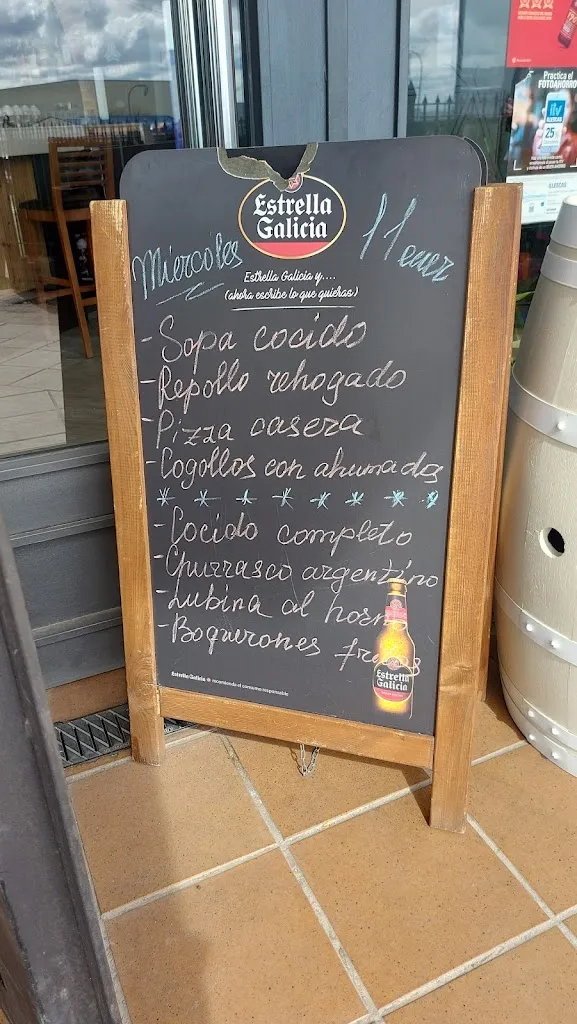 Practica el
FOTOAHORRO
ILLESCAS
25
ILLESCAS
Estrella
Galicia
Miércoles
11 eur
Estrella Galicia y....
(ahora escribe lo que quieras)
- Sopa cocido
- Repollo rehogado
- Pizza casera
- Cogollos con ahumados
* * * * * * * *
- Cocido completo
- Churrasco argentino
- Lubina al horno
- Boquerones fritos
Estrella
Galicia
Estrella Galicia recomienda el consumo responsable